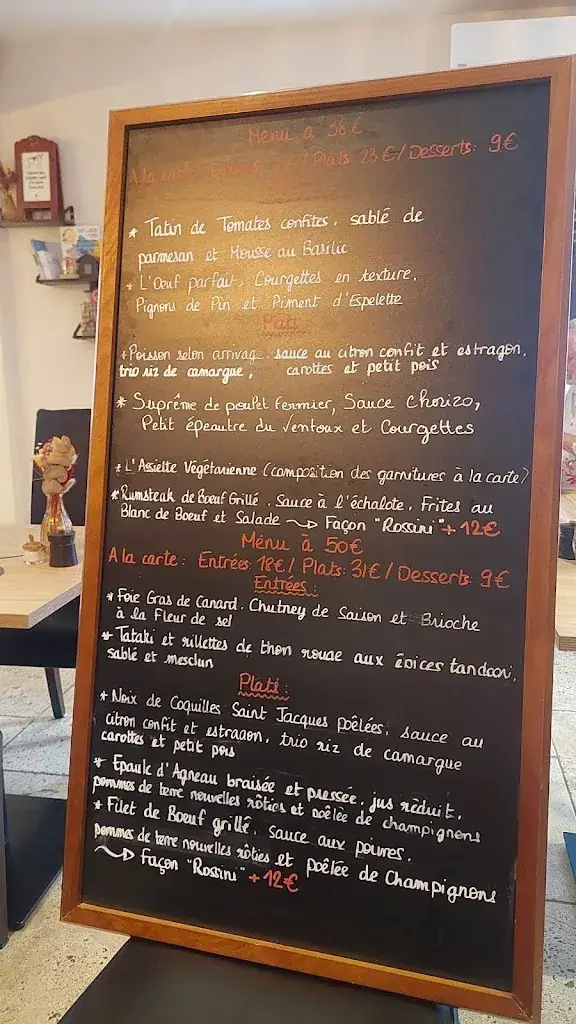 Menu à 38€
A la carte: Entrées / Plats 23€/Desserts: 9€
* Tatin de Tomates confites, sablé de
parmesan et Mousse au Basilic
* L'Oeuf parfait, Courgettes en texture,
Pignons de Pin et Piment d'Espelette
Plats
* Poisson selon arrivage, sauce au citron confit et estragon,
trio riz de camargue, carottes et petit pois
* Suprême de poulet fermier, Sauce Chorizo,
Petit épeautre du Ventoux et Courgettes
* L'Assiette Végétarienne (composition des garnitures à la carte)
* Rumsteak de Boeuf Grillé, Sauce à l'échalote, Frites au
Blanc de Boeuf et Salade ~> Façon "Rossini" + 12€
Menu à 50€
A la carte: Entrées 18€/ Plats: 31€/ Desserts 9€
Entrées:
* Foie Gras de Canard, Chutney de Saison et Brioche
à la Fleur de sel
* Tataki et rillettes de thon rouge aux épices tandoori,
sablé et mesclun
Plats:
* Noix de Coquilles Saint Jacques poêlées, sauce au
citron confit et estragon, trio riz de camargue
carottes et petit pois
* Epaule d'Agneau braisée et pressée, jus réduit,
pommes de terre nouvelles rôties et poêlée de champignons
* Filet de Boeuf grillé, sauce aux poivres,
pommes de terre nouvelles rôties et poêlée de Champignons
~> Façon "Rossini" + 12€